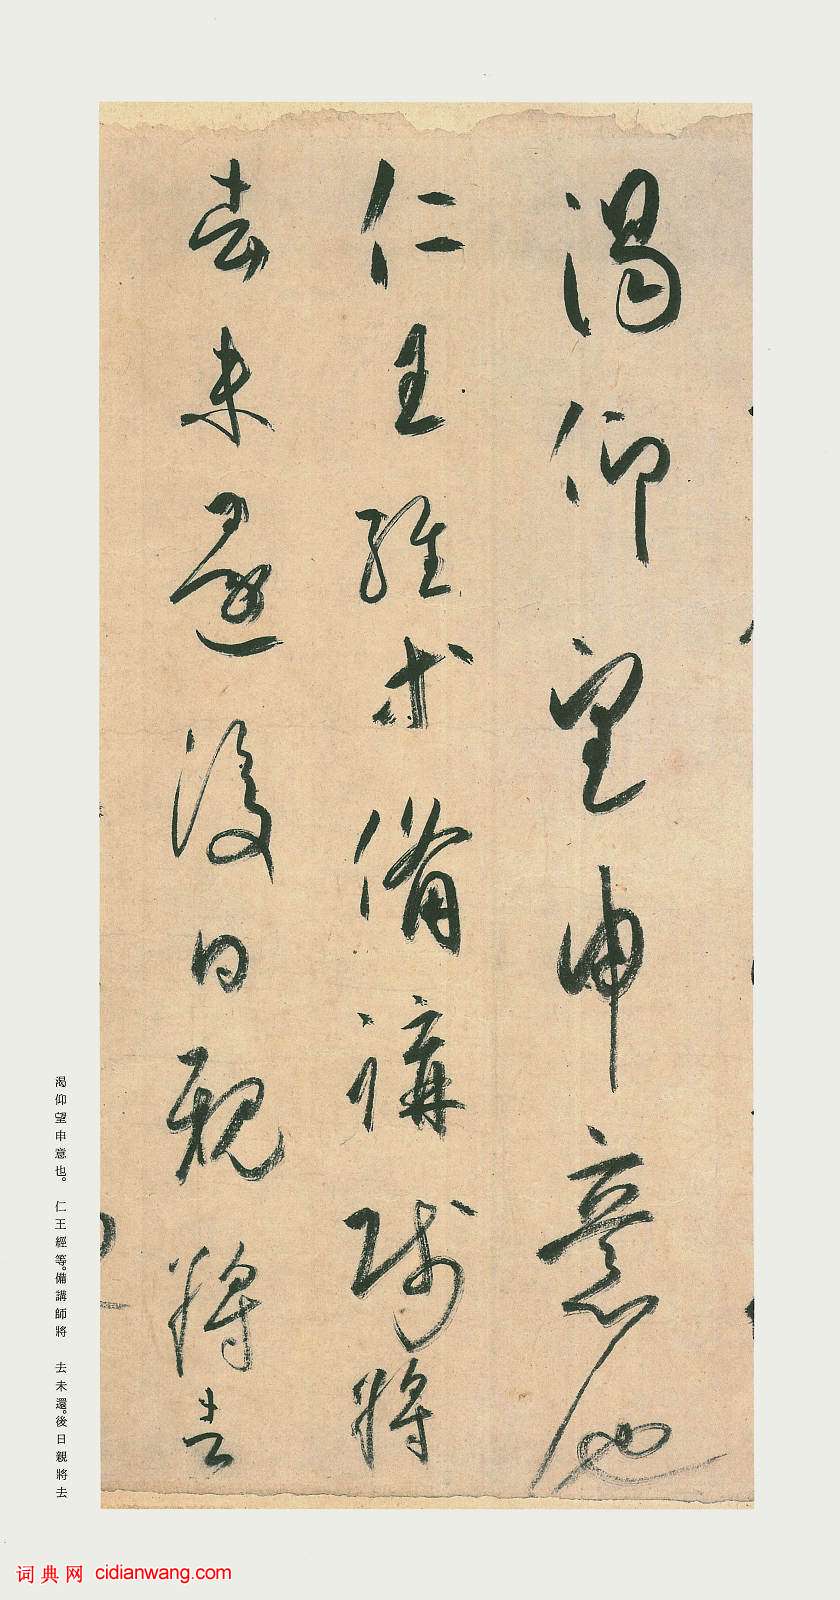 渴仰望申意也
仁王經等備講師將
去未還後日親將去
渴仰望申意也。 仁王經等。備講師將 去未還。後日親將去
词典网 cidianwang.com